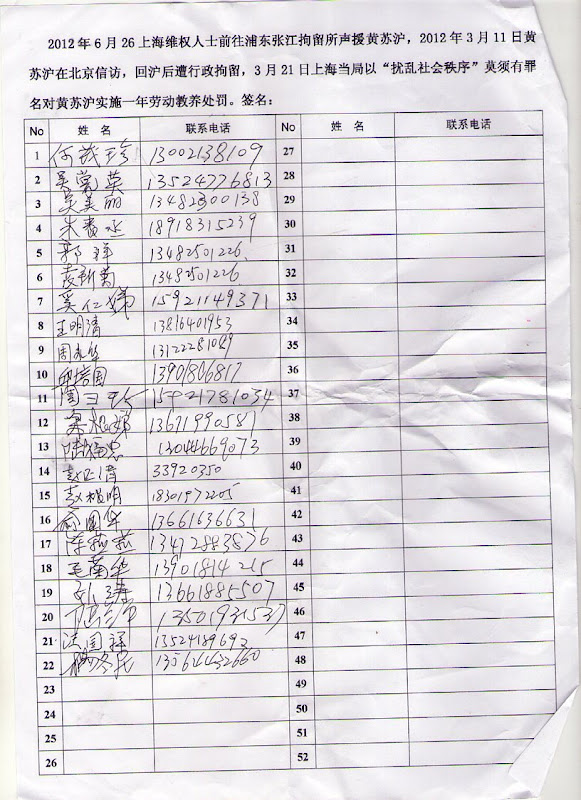 2012年6月26上海维权人士前往浦东张江拘留所声援黄苏沪，2012年3月11日黄
苏沪在北京信访，回沪后遭行政拘留，3月21日上海当局以“扰乱社会秩序”莫须有罪
名对黄苏沪实施一年劳动教养处罚。签名：
No 姓 名 联系电话 No 姓 名 联系电话
1 何茂珍 13002138109 27
2 13524776813 28
3 吴美丽 13482300138 29
4 18918315239 30
5 郭祥 13482501226 31
6 13482501226 32
7 奚仁娣 15921149371 33
8 王明清 13816401953 34
9 周永华 35
10 13901806817 36
11 37
12 13671990581 38
13 陆福忠 13044669073 39
14 赵正清 33920350 40
15 赵根明 18301972205 41
16 俞国华 13661636631 42
17 陈菰菰 13472883876 43
18 毛菊华 13901814215 44
19 孙涛 13661885507 45
20 13501931537 46
21 洪国祥 47
22 48
23 49
24 50
25 51
26 52